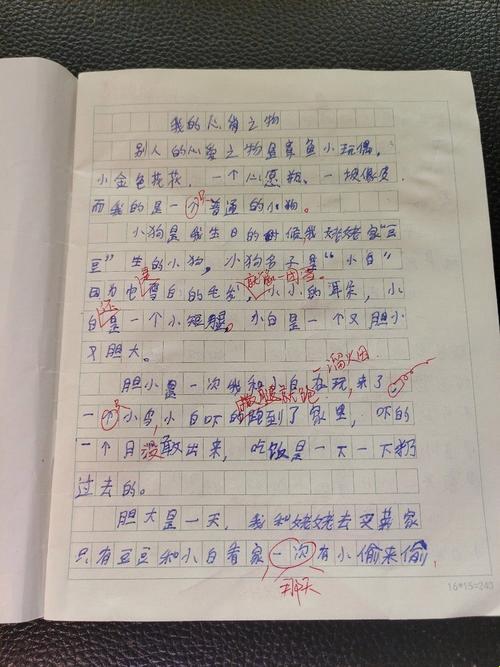 我的心爱之物
别人的心爱之物是章鱼小玩偶,
小金色花花,一个心愿瓶、一
而我的是一个只普通的小狗。
小狗是我生日的时候,我姥姥家"豆
豆"生的小狗,小狗名子是"小白"
是 就像一团雪。
因为它 白的毛发,小小的耳朵,小
还
白是一个小短腿。小白是一个又胆小
又胆大。
一溜烟
胆小是一次我和小白在玩,来了
只 撒腿就跑
一个小鸟,小白吓的跑到了家里,吓的
一个月没敢出来,吃饭是一下一下扔
过去的。
胆大是一天,我和姥姥去买菜家
只有豆豆和小白看家,一次有小偷来偷,
那天
16*15=240